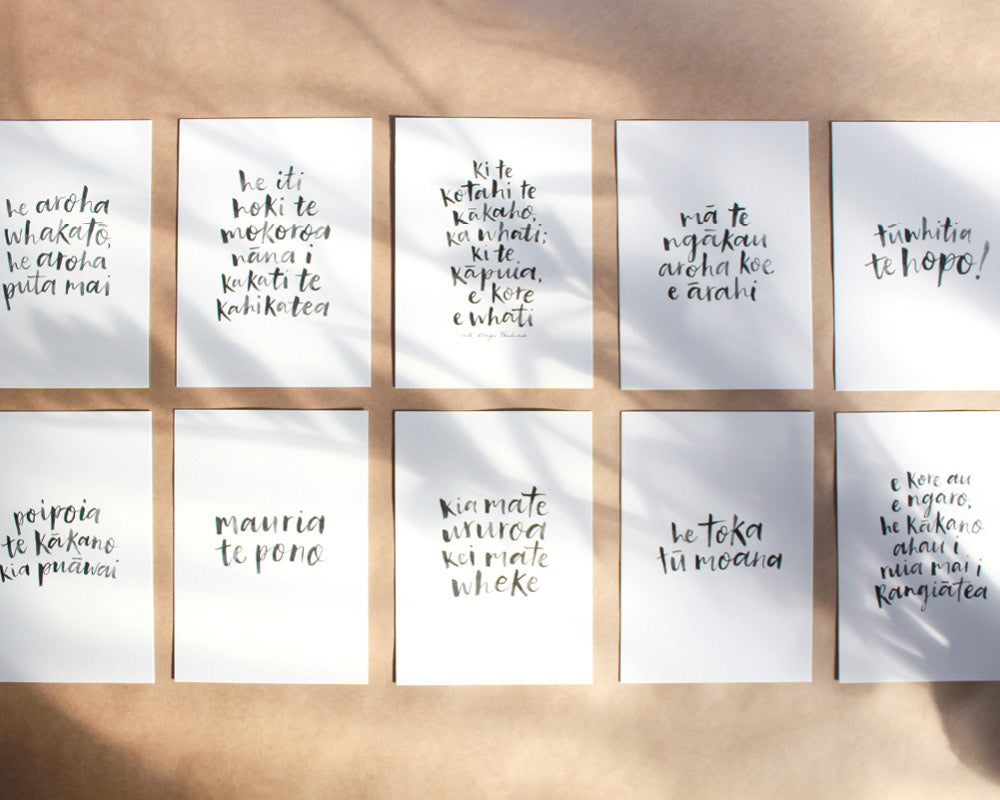 he aroha
whakatō,
he aroha
puta mai
he iti
hoki te
mokoroa
nāna i
kakati te
kahikatea
ki te
kotahi te
kākaho,
ka whati;
ki te
kāpuia,
e kore
e whati
mā te
ngākau
aroha koe
e ārahi
tūwhitia
te hopo!
poipoia
te kākano
kia puāwai
mauria
te pono
kia mate
ururoa
kei mate
wheke
he toka
tū moana
e kore au
e ngaro,
he kākano
ahau i
ruia mai i
Rangiātea